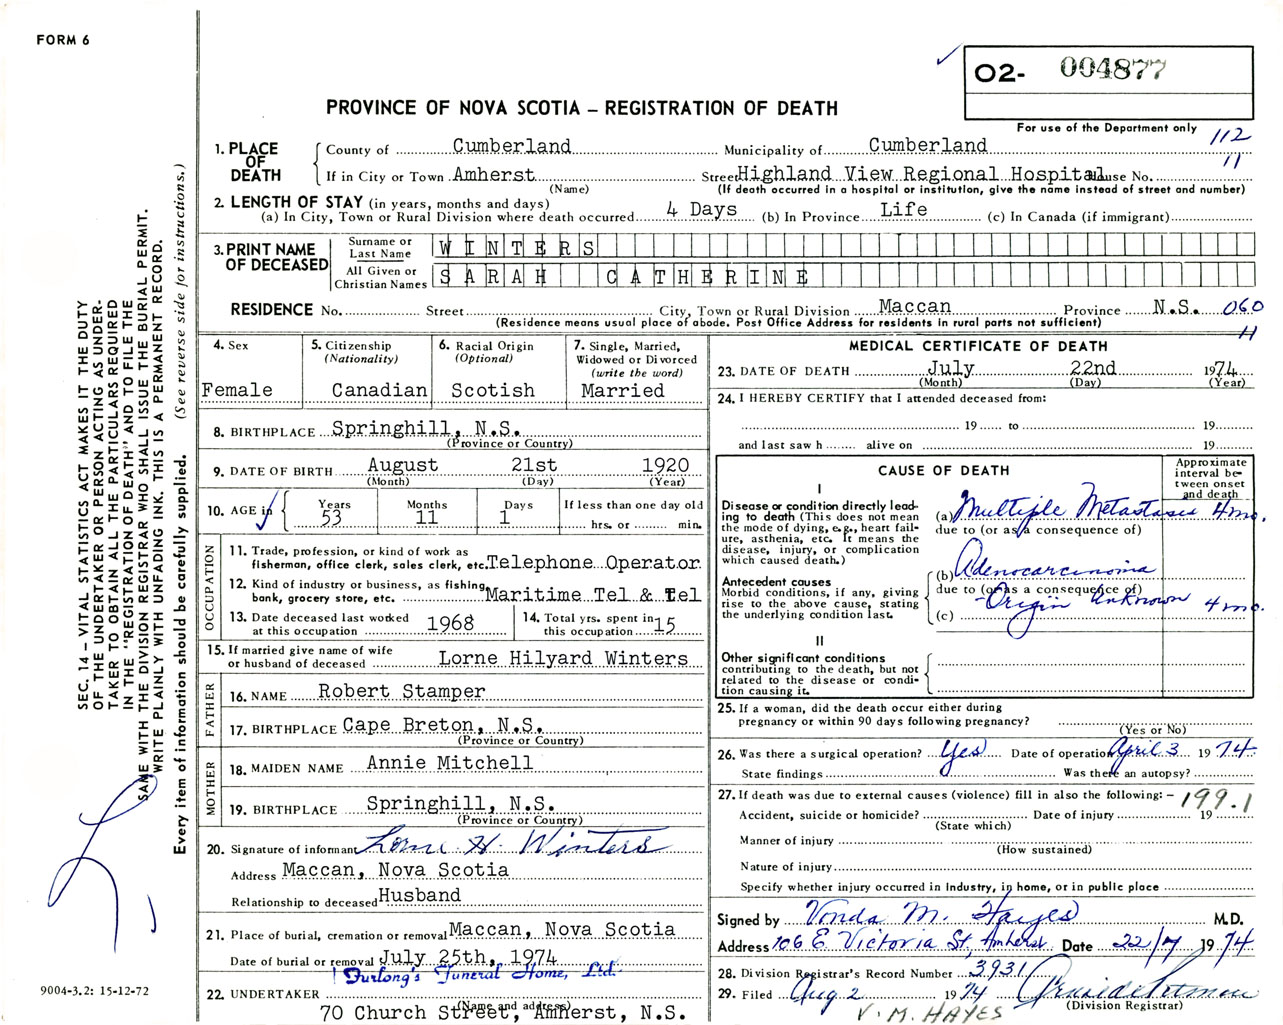 FORM 6
02- 004877
PROVINCE OF NOVA SCOTIA – REGISTRATION OF DEATH
For use of the Department only
112
11
1. PLACE OF DEATH
County of Cumberland Municipality of Cumberland
If in City or Town Amherst Street Highland View Regional Hospital House No.
(Name) (If death occurred in a hospital or institution, give the name instead of street and number)
2. LENGTH OF STAY (in years, months and days)
(a) In City, Town or Rural Division where death occurred 4 Days (b) In Province Life (c) In Canada (if immigrant)
3. PRINT NAME OF DECEASED
Surname or Last Name WINTERS
All Given or Christian Names SARAH CATHERINE
RESIDENCE No. Street City, Town or Rural Division Maccan Province N.S. 060
(Residence means usual place of abode. Post Office Address for residents in rural parts not sufficient)
11
4. Sex
Female
5. Citizenship
(Nationality)
Canadian
6. Racial Origin
(Optional)
Scotish
7. Single, Married,
Widowed or Divorced
(write the word)
Married
8. BIRTHPLACE Springhill, N.S.
(Province or Country)
9. DATE OF BIRTH August 21st 1920
(Month) (Day) (Year)
10. AGE in
Years Months Days If less than one day old
53 11 1 hrs. or min.
OCCUPATION
11. Trade, profession, or kind of work as
fisherman, office clerk, sales clerk, etc. Telephone Operator
12. Kind of industry or business, as fishing,
bank, grocery store, etc. Maritime Tel & Tel
13. Date deceased last worked
at this occupation 1968
14. Total yrs. spent in
this occupation 15
15. If married give name of wife
or husband of deceased Lorne Hilyard Winters
FATHER
16. NAME Robert Stamper
17. BIRTHPLACE Cape Breton, N.S.
(Province or Country)
MOTHER
18. MAIDEN NAME Annie Mitchell
19. BIRTHPLACE Springhill, N.S.
(Province or Country)
20. Signature of informant Lorne H. Winters
Address Maccan, Nova Scotia
Relationship to deceased Husband
21. Place of burial, cremation or removal Maccan, Nova Scotia
Date of burial or removal July 25th, 1974
Furlong's Funeral Home, Ltd.
22. UNDERTAKER
(Name and address)
70 Church Street, Amherst, N.S.
MEDICAL CERTIFICATE OF DEATH
23. DATE OF DEATH July 22nd 1974
(Month) (Day) (Year)
24. I HEREBY CERTIFY that I attended deceased from:
19 to 19
and last saw h alive on 19
CAUSE OF DEATH
Approximate
interval be-
tween onset
and death
I
Disease or condition directly lead-
ing to death (This does not mean
the mode of dying, e.g., heart fail-
ure, asthenia, etc. It means the
disease, injury, or complication
which caused death.)
(a) Multiple Metastasis 4 mo.
due to (or as a consequence of)
Antecedent causes
Morbid conditions, if any, giving
rise to the above cause, stating
the underlying condition last.
(b) Adenocarcinoma
due to (or as a consequence of)
- Origin Unknown 4 mo.
(c)
II
Other significant conditions
contributing to the death, but not
related to the disease or condi-
tion causing it.
25. If a woman, did the death occur either during
pregnancy or within 90 days following pregnancy?
(Yes or No)
26. Was there a surgical operation? Yes Date of operation April 3 1974
State findings Was there an autopsy?
27. If death was due to external causes (violence) fill in also the following: – 199.1
Accident, suicide or homicide? Date of injury 19
(State which)
Manner of injury
(How sustained)
Nature of injury
Specify whether injury occurred in Industry, in home, or in public place
Signed by Vonda M. Hayes M.D.
Address 106 E Victoria St, Amherst Date 22/7 1974
28. Division Registrar's Record Number 3931
29. Filed Aug 2 1974
(Division Registrar)
V. M. HAYES
SEC. 14 – VITAL STATISTICS ACT MAKES IT THE DUTY
OF THE UNDERTAKER OR PERSON ACTING AS UNDER-
TAKER TO OBTAIN ALL THE PARTICULARS REQUIRED
IN THE "REGISTRATION OF DEATH" AND TO FILE THE
SAME WITH THE DIVISION REGISTRAR WHO SHALL ISSUE THE BURIAL PERMIT.
WRITE PLAINLY WITH UNFADING INK. THIS IS A PERMANENT RECORD.
Every item of information should be carefully supplied. (See reverse side for instructions.)
9004-3.2: 15-12-72